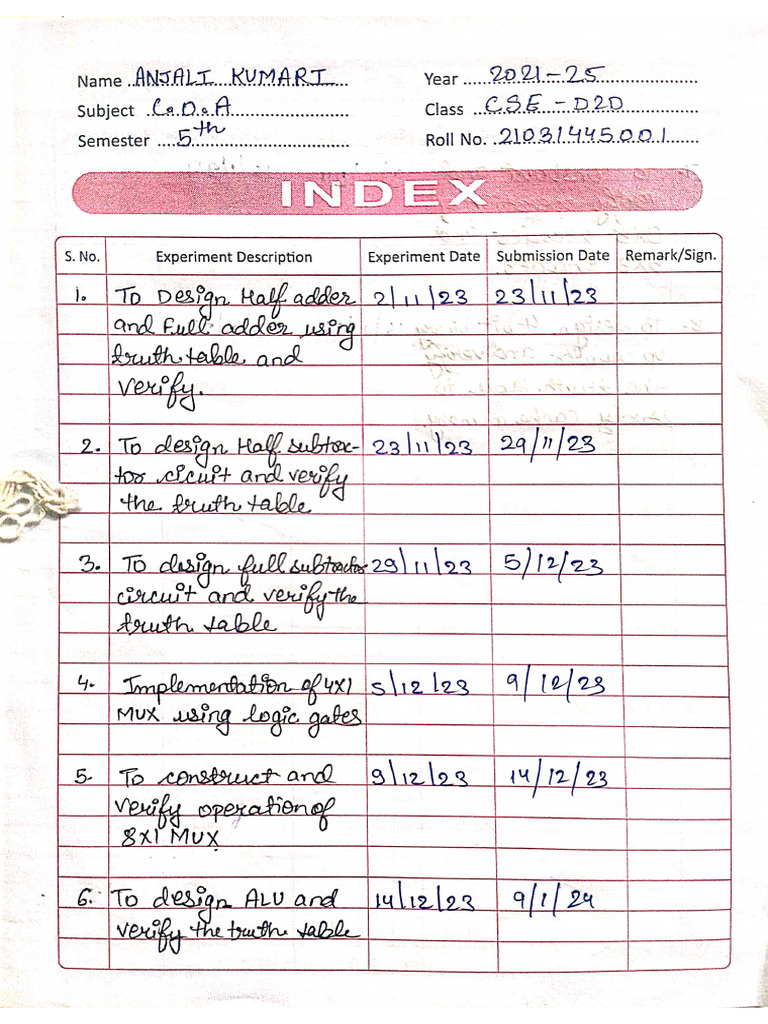 Name ANJALI KUMARI Year 2021-25
Subject C.O.A Class CSE-D2D
Semester 5th Roll No. 21031445001
INDEX
S. No. Experiment Description Experiment Date Submission Date Remark/Sign.
1. To Design Half adder 2/11/23 23/11/23
and Full adder using
truth table and
verify.
2. To design Half subtrac- 23/11/23 29/11/23
tor cicuit and verify
the truth table
3. To design full subtractor 29/11/23 5/12/23
circuit and verify the
truth table
4. Implementation of 4X1 5/12/23 9/12/23
MUX using logic gates
5. To construct and 9/12/23 14/12/23
verify operation of
8X1 MUX
6. To design ALU and 14/12/23 9/1/24
verify the truth table